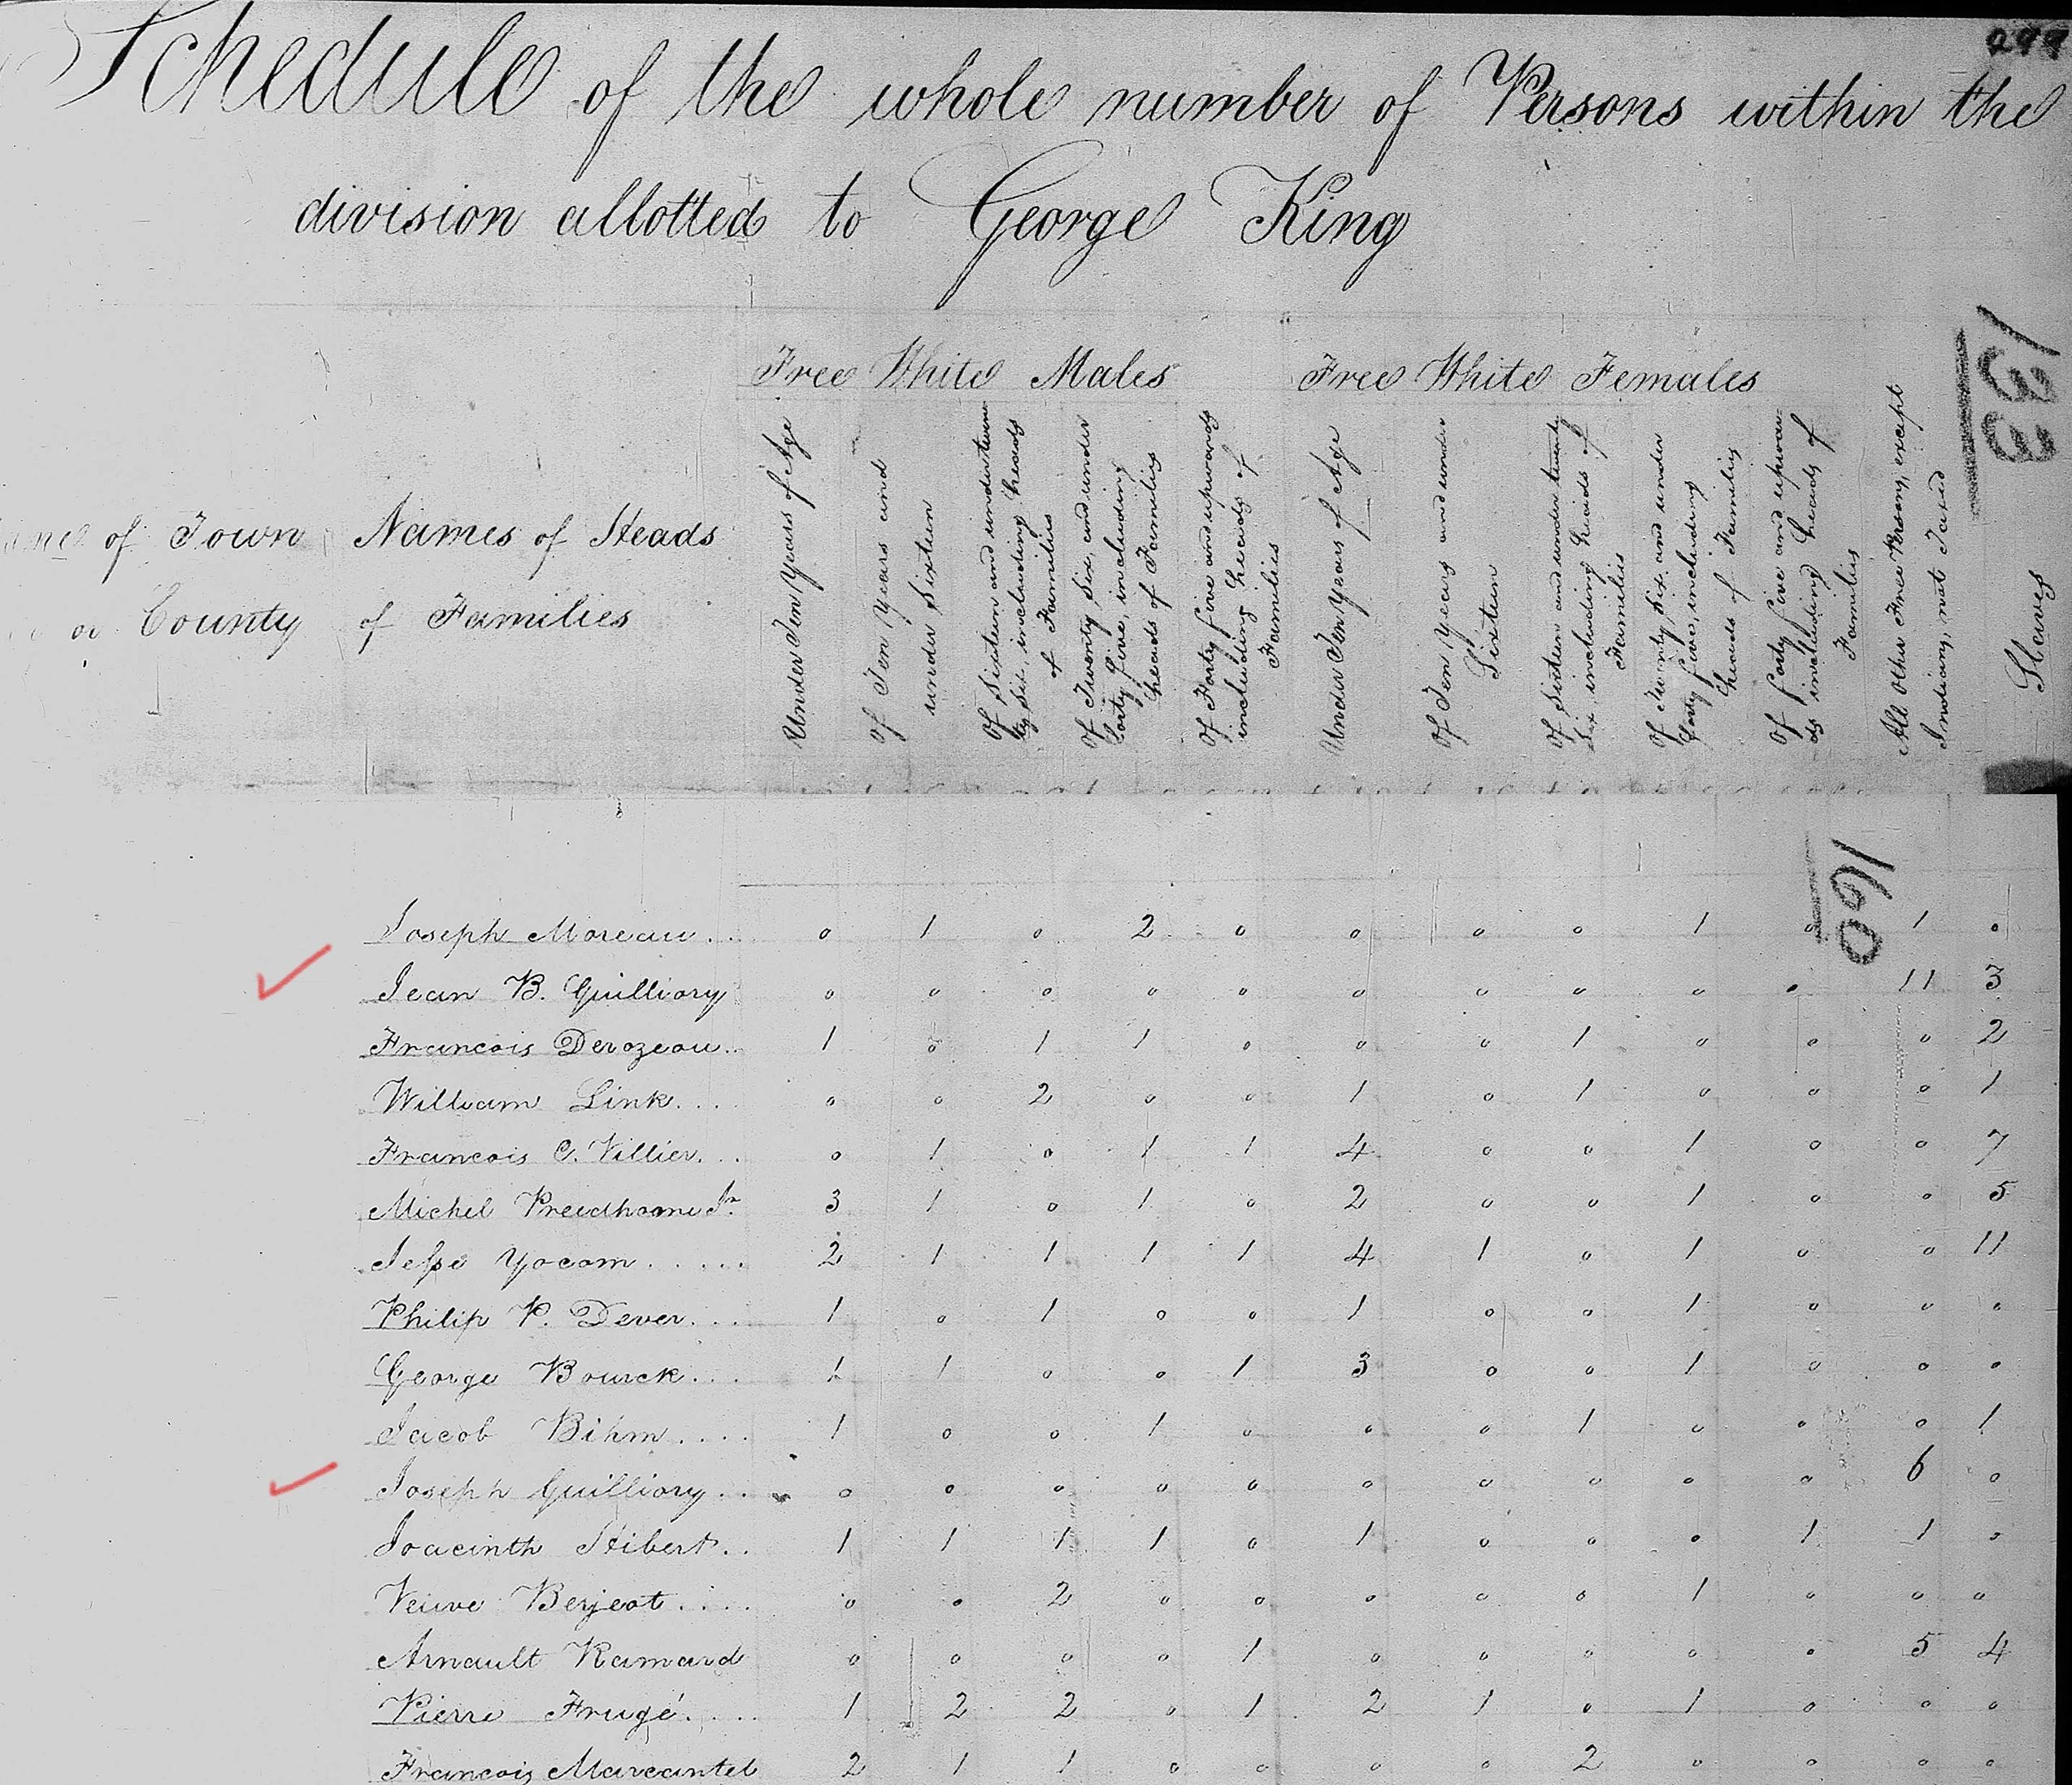 Schedule of the whole number of Persons within the
division allotted to George King
133
Free White Males Free White Females
of Town
or County
Names of Heads
of Families
Under Ten Years of Age
Of Ten Years and
under Sixteen
Of Sixteen and under twen
ty six, including heads
of Families
Of Twenty Six, and under
forty five, including
heads of Families
Of Forty five and upwards
including heads of
Families
Under Ten Years of Age
Of Ten Years and under
Sixteen
Of Sixteen and under twenty
Six, including heads of
Families
Of Twenty Six and under
forty five, including
heads of Families
Of forty five and upwar
ds including heads of
Families
All Other Free Persons, except
Indians, not Taxed
Slaves
160
Joseph Moreau... 0 1 0 2 0 0 0 0 1 0 1 0
Jean B. Guilliory 0 0 0 0 0 0 0 0 0 0 11 3
Francois Derozeau.. 1 0 1 1 0 0 0 1 0 0 0 2
William Link.... 0 0 2 0 0 1 0 1 0 0 0 1
Francois C. Villier... 0 1 0 1 1 4 0 0 1 0 0 7
Michel Preedhomme Jr. 3 1 0 1 0 2 0 0 1 0 0 5
Jesse Yocom..... 2 1 1 1 1 4 1 0 1 0 0 11
Philip P. Dever.... 1 0 1 0 0 1 0 0 1 0 0 0
George Bourck.... 1 1 0 0 1 3 0 0 1 0 0 0
Jacob Bihm.... 1 0 0 1 0 0 0 1 0 0 0 1
Joseph Guilliory.. 0 0 0 0 0 0 0 0 0 0 6 0
Joacinth Hibert.. 1 1 1 1 0 1 0 0 0 1 1 0
Veuve Berjeat.... 0 0 2 0 0 0 0 0 1 0 0 0
Arnault Ramard 0 0 0 0 1 0 0 0 0 0 5 4
Pierre Frugé.... 1 2 2 0 1 2 1 0 1 0 0 0
Francois Marcantel 2 1 1 0 0 0 0 2 0 0 0 0